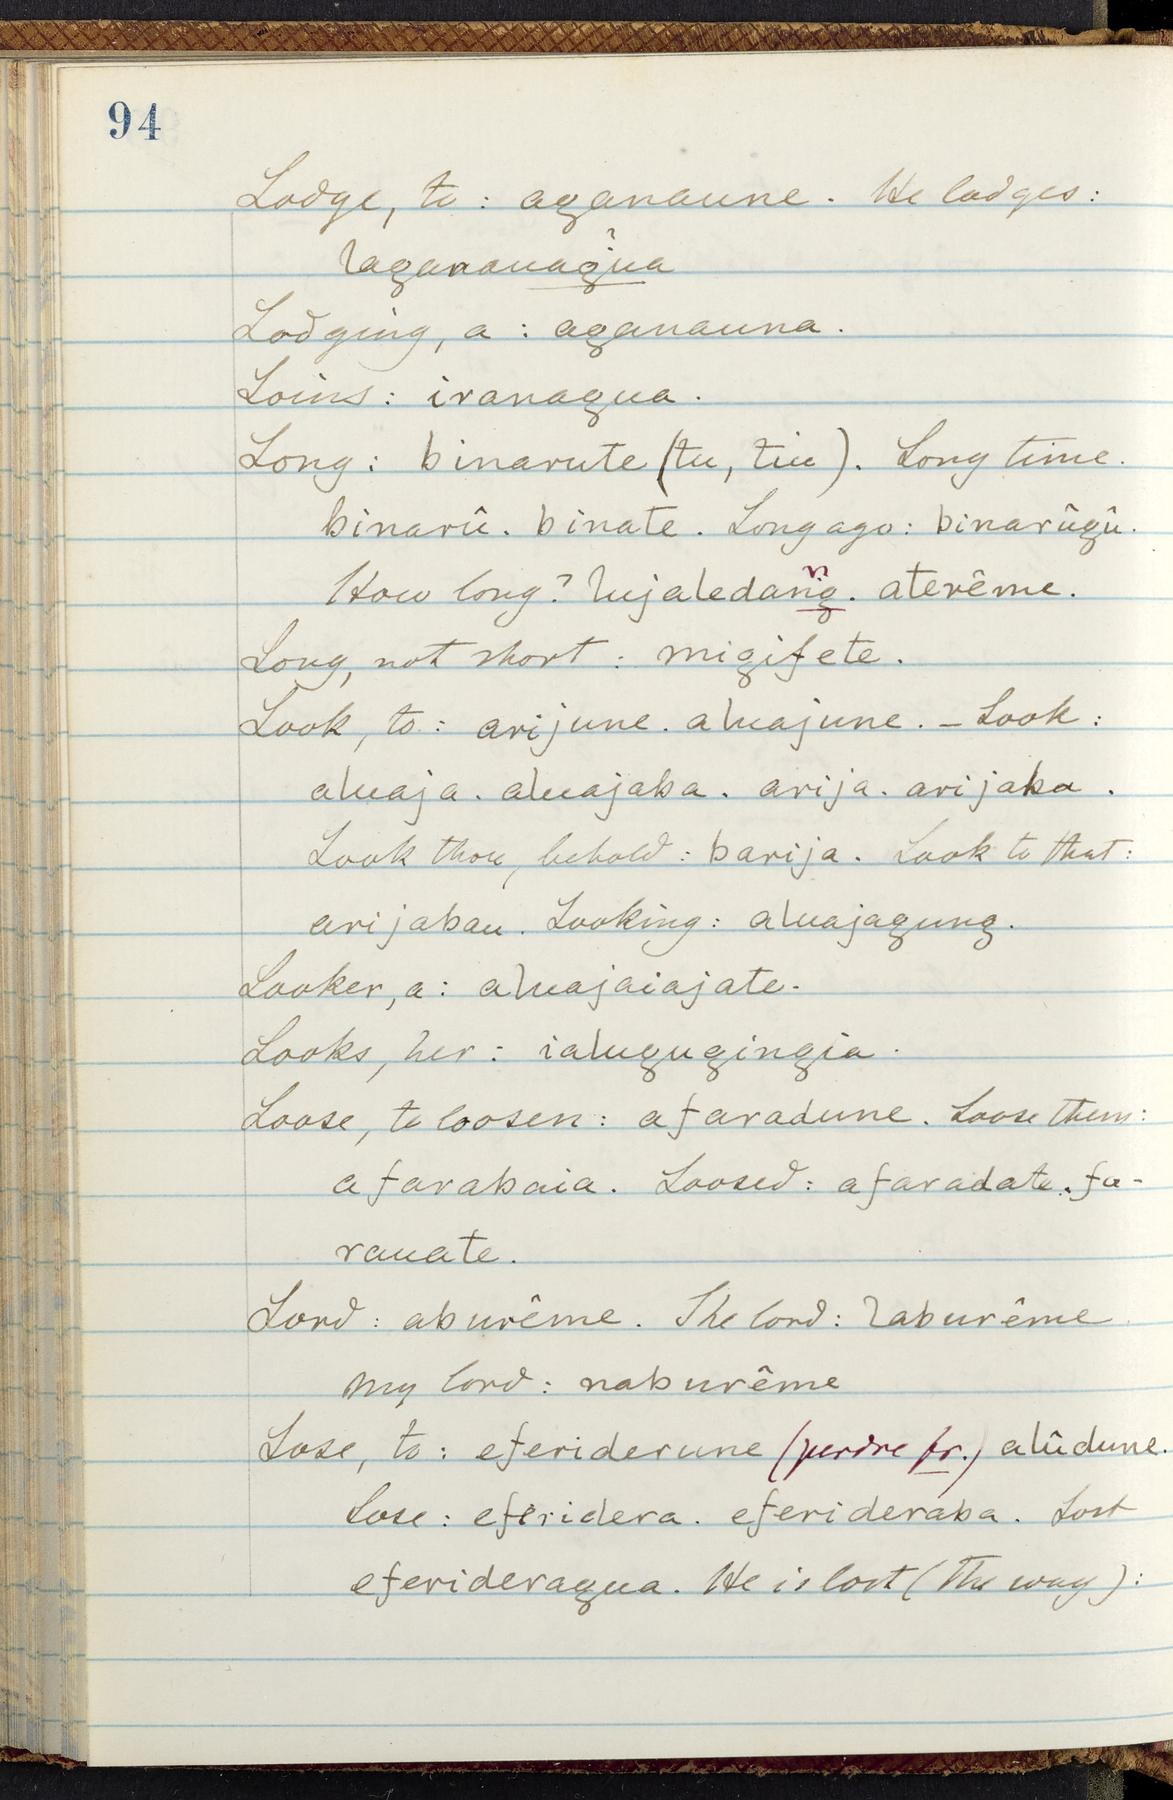 94
Lodge, to : aganaune. He lodges:
laganauagûa
Lodging, a : aganauna.
Loins : iranagua.
Long : binarute (tu, tiu). Long time.
binarû. binate. Long ago : binarûgû.
How long? lujaledanĝ. aterême.
Long, not short : migifete.
Look, to : arijune. aluajune. – Look :
aluaja. aluajaba. arija. arijaba.
Look thou, behold : barija. Look to that :
arijabau. Looking : aluajagung.
Looker, a : aluajaiajate.
Looks, her : ialugugingia.
Loose, to loosen : afaradune. Loose them :
afarabaia. Loosed : afaradate. fa-
rauate.
Lord : aburême. The lord : laburême
my lord : naburême
Lose, to : eferiderune (perdre fr.) alûdune.
Lose : eferidera. eferideraba. Lost
eferideragua. He is lost (the way) :